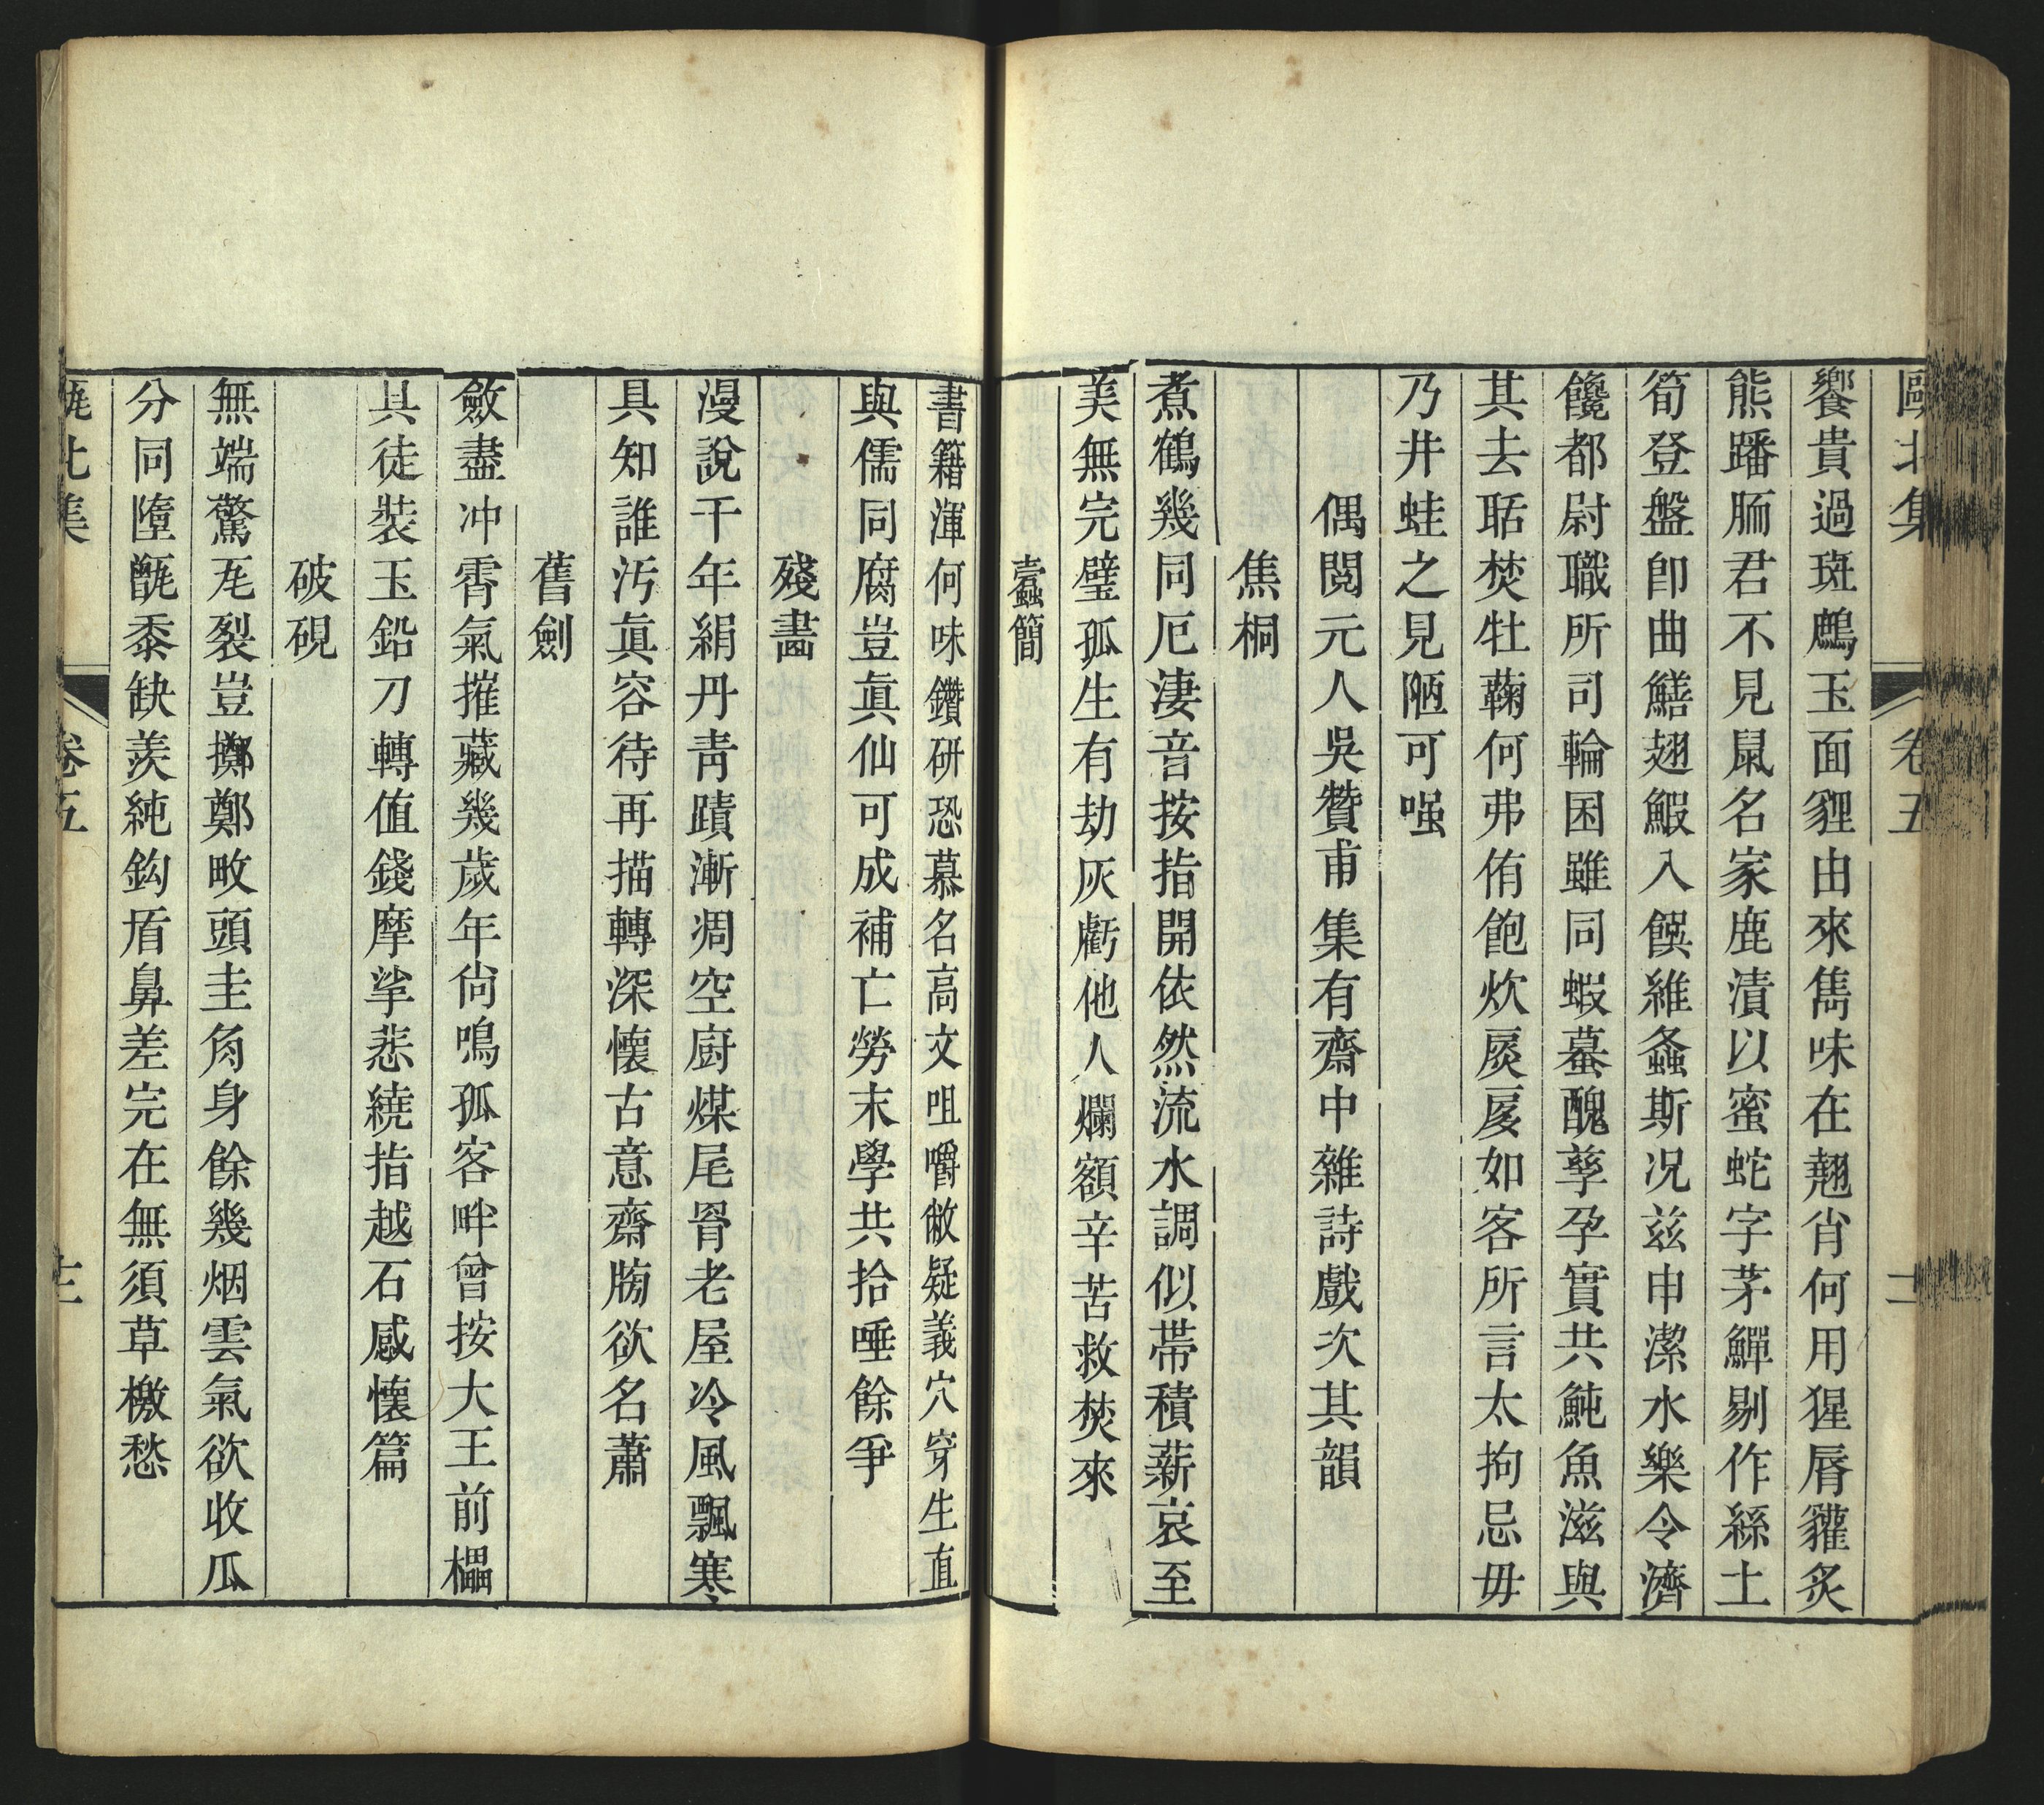 甌北集 卷五
饗貴過斑鷓玉面貍由來雋味在翹肖何用猩脣貛炙
熊蹯胹君不見鼠名家鹿漬以蜜蛇字茅鱓剔作絲土
筍登盤卽曲鱔翅鰕入饌維螽斯况兹申潔水樂令濟
饞都尉職所司輪囷雖同蝦蟇醜孳孕實共魨魚滋與
其去聒焚牡蘜何弗侑飽炊扊扅如客所言太拘忌毋
乃井蛙之見陋可嗤
偶閱元人吳贊甫集有齋中雜詩戲次其韻
焦桐
煮鶴幾同厄淒音按指開依然流水調似帶積薪哀至
美無完璧孤生有劫灰虧他人爛額辛苦救焚來
蠹簡
書籍渾何味鑽研恐慕名高文咀嚼敝疑義穴穿生直
與儒同腐豈眞仙可成補亡勞末學共拾唾餘爭
殘畵
漫說千年絹丹靑蹟漸凋空廚煤尾胷老屋冷風飄寒
具知誰汚眞容待再描轉深懷古意齋牓欲名蕭
舊劍
斂盡冲霄氣摧藏幾歲年尙鳴孤客畔曾按大王前櫑
具徒裝玉鉛刀轉値錢摩挲悲繞指越石感懷篇
破硯
無端驚瓦裂豈擲鄭畋頭圭角身餘幾烟雲氣欲收瓜
分同墮甑黍缺羨純鈎盾鼻差完在無須草檄愁
甌北集 卷五